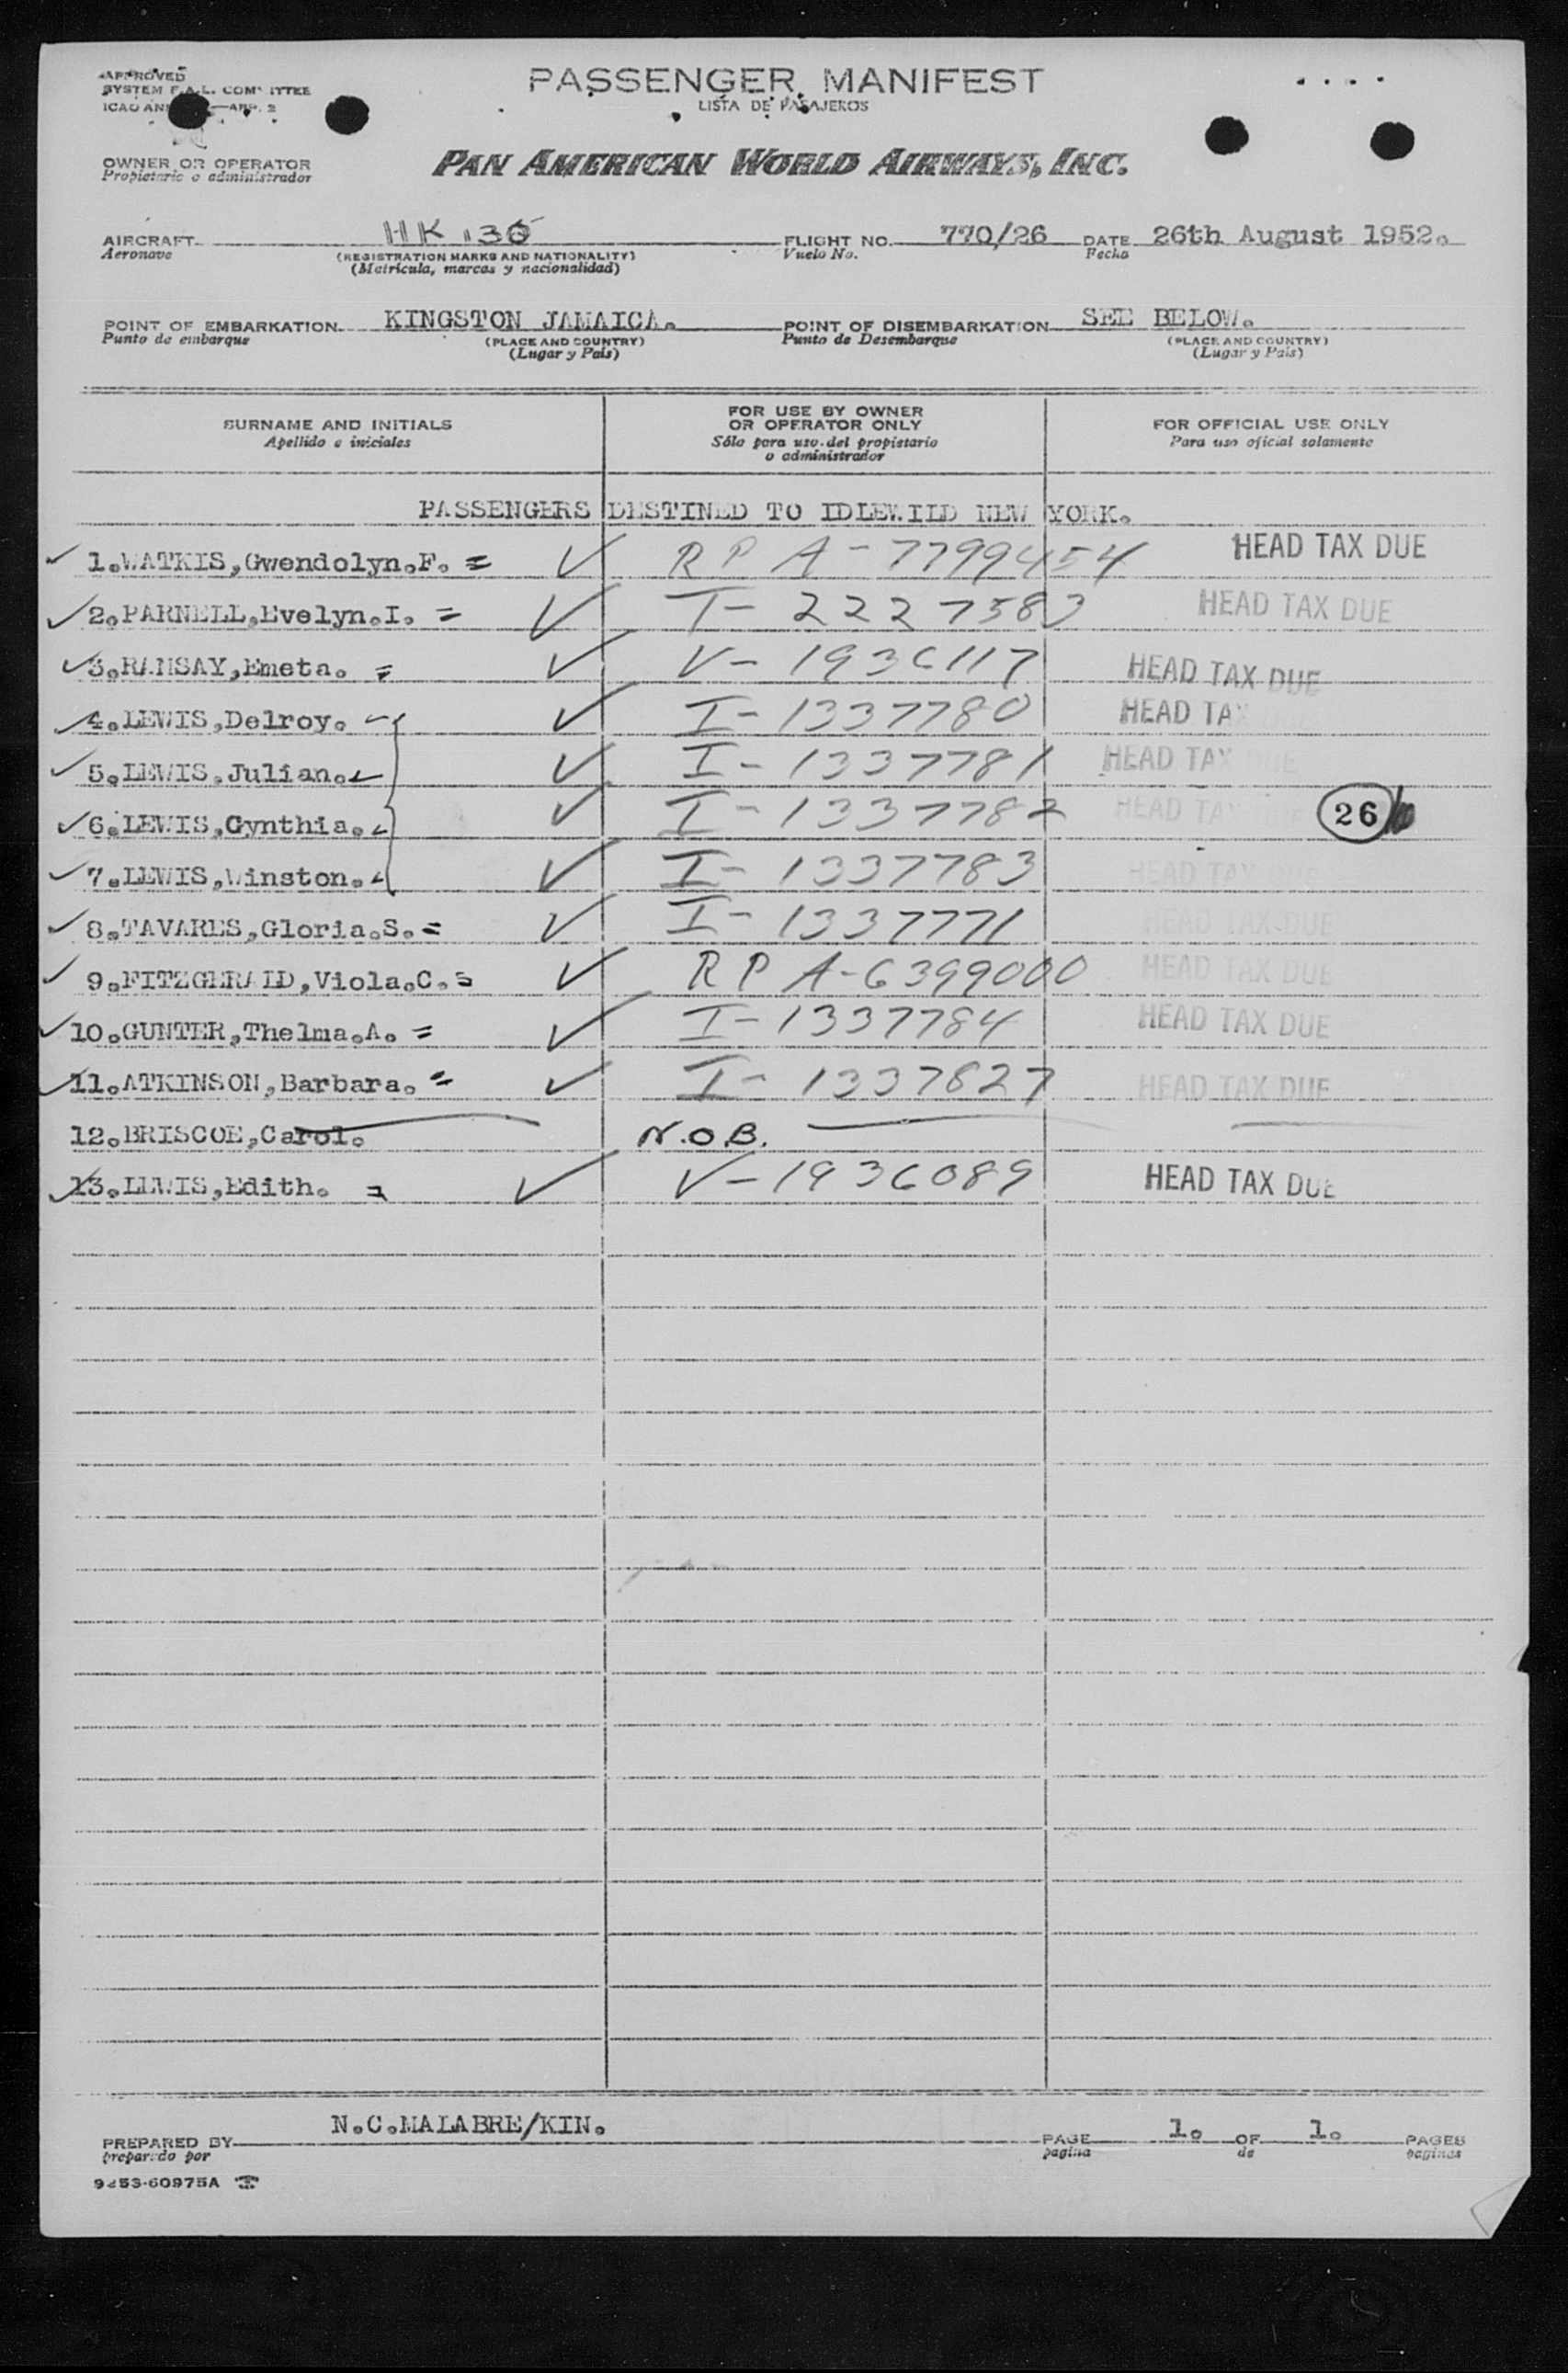 APPROVED
SYSTEM F.A.L. COMMITTEE
ICAO APP. 2
PASSENGER MANIFEST
LISTA DE PASAJEROS
OWNER OR OPERATOR
Propietario o administrador
PAN AMERICAN WORLD AIRWAYS, INC.
AIRCRAFT HK 136 FLIGHT NO. 770/26 DATE 26th August 1952.
Aeronave (REGISTRATION MARKS AND NATIONALITY) Vuelo No. Fecha
(Matrícula, marcas y nacionalidad)
POINT OF EMBARKATION KINGSTON JAMAICA. POINT OF DISEMBARKATION SEE BELOW.
Punto de embarque (PLACE AND COUNTRY) Punto de Desembarque (PLACE AND COUNTRY)
(Lugar y País) (Lugar y País)
SURNAME AND INITIALS
Apellido e iniciales
FOR USE BY OWNER
OR OPERATOR ONLY
Sólo para uso del propietario
o administrador
FOR OFFICIAL USE ONLY
Para uso oficial solamente
PASSENGERS DESTINED TO IDLEWILD NEW YORK.
1.WATKIS,Gwendolyn.F. = RP A-7799454 HEAD TAX DUE
2.PARNELL,Evelyn.I. = I- 2227583 HEAD TAX DUE
3.RAMSAY,Emeta. = V-1936117 HEAD TAX DUE
4.LEWIS,Delroy. I-1337780 HEAD TA
5.LEWIS,Julian. I-1337781 HEAD TAX DUE
6.LEWIS,Cynthia. I-1337782 HEAD TA 26
7.LEWIS,Winston. I-1337783 HEAD TAX DUE
8.TAVARES,Gloria.S. = I-1337771 HEAD TAX DUE
9.FITZGERALD,Viola.C. = RP A-6399000 HEAD TAX DUE
10.GUNTER,Thelma.A. = I-1337784 HEAD TAX DUE
11.ATKINSON,Barbara. = I-1337827 HEAD TAX DUE
12.BRISCOE,Carol. N.O.B.
13.LEWIS,Edith. = V-1936089 HEAD TAX DUE
PREPARED BY N.C.MALABRE/KIN. PAGE 1. OF 1. PAGES
preparado por pagina de paginas
9253-60975A